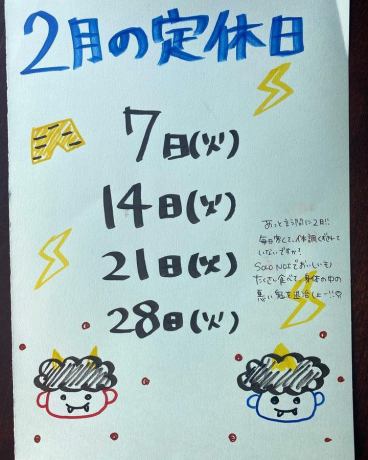 2月の定休日
7日(火)
14日(火)
21日(火)
28日(火)
あっと言う間に2月!!
毎日寒くて、体調くずして
いないですか?
SOLO NOIでおいしいもの
たくさん食べて、身体の中の
悪い鬼を退治しよー!!